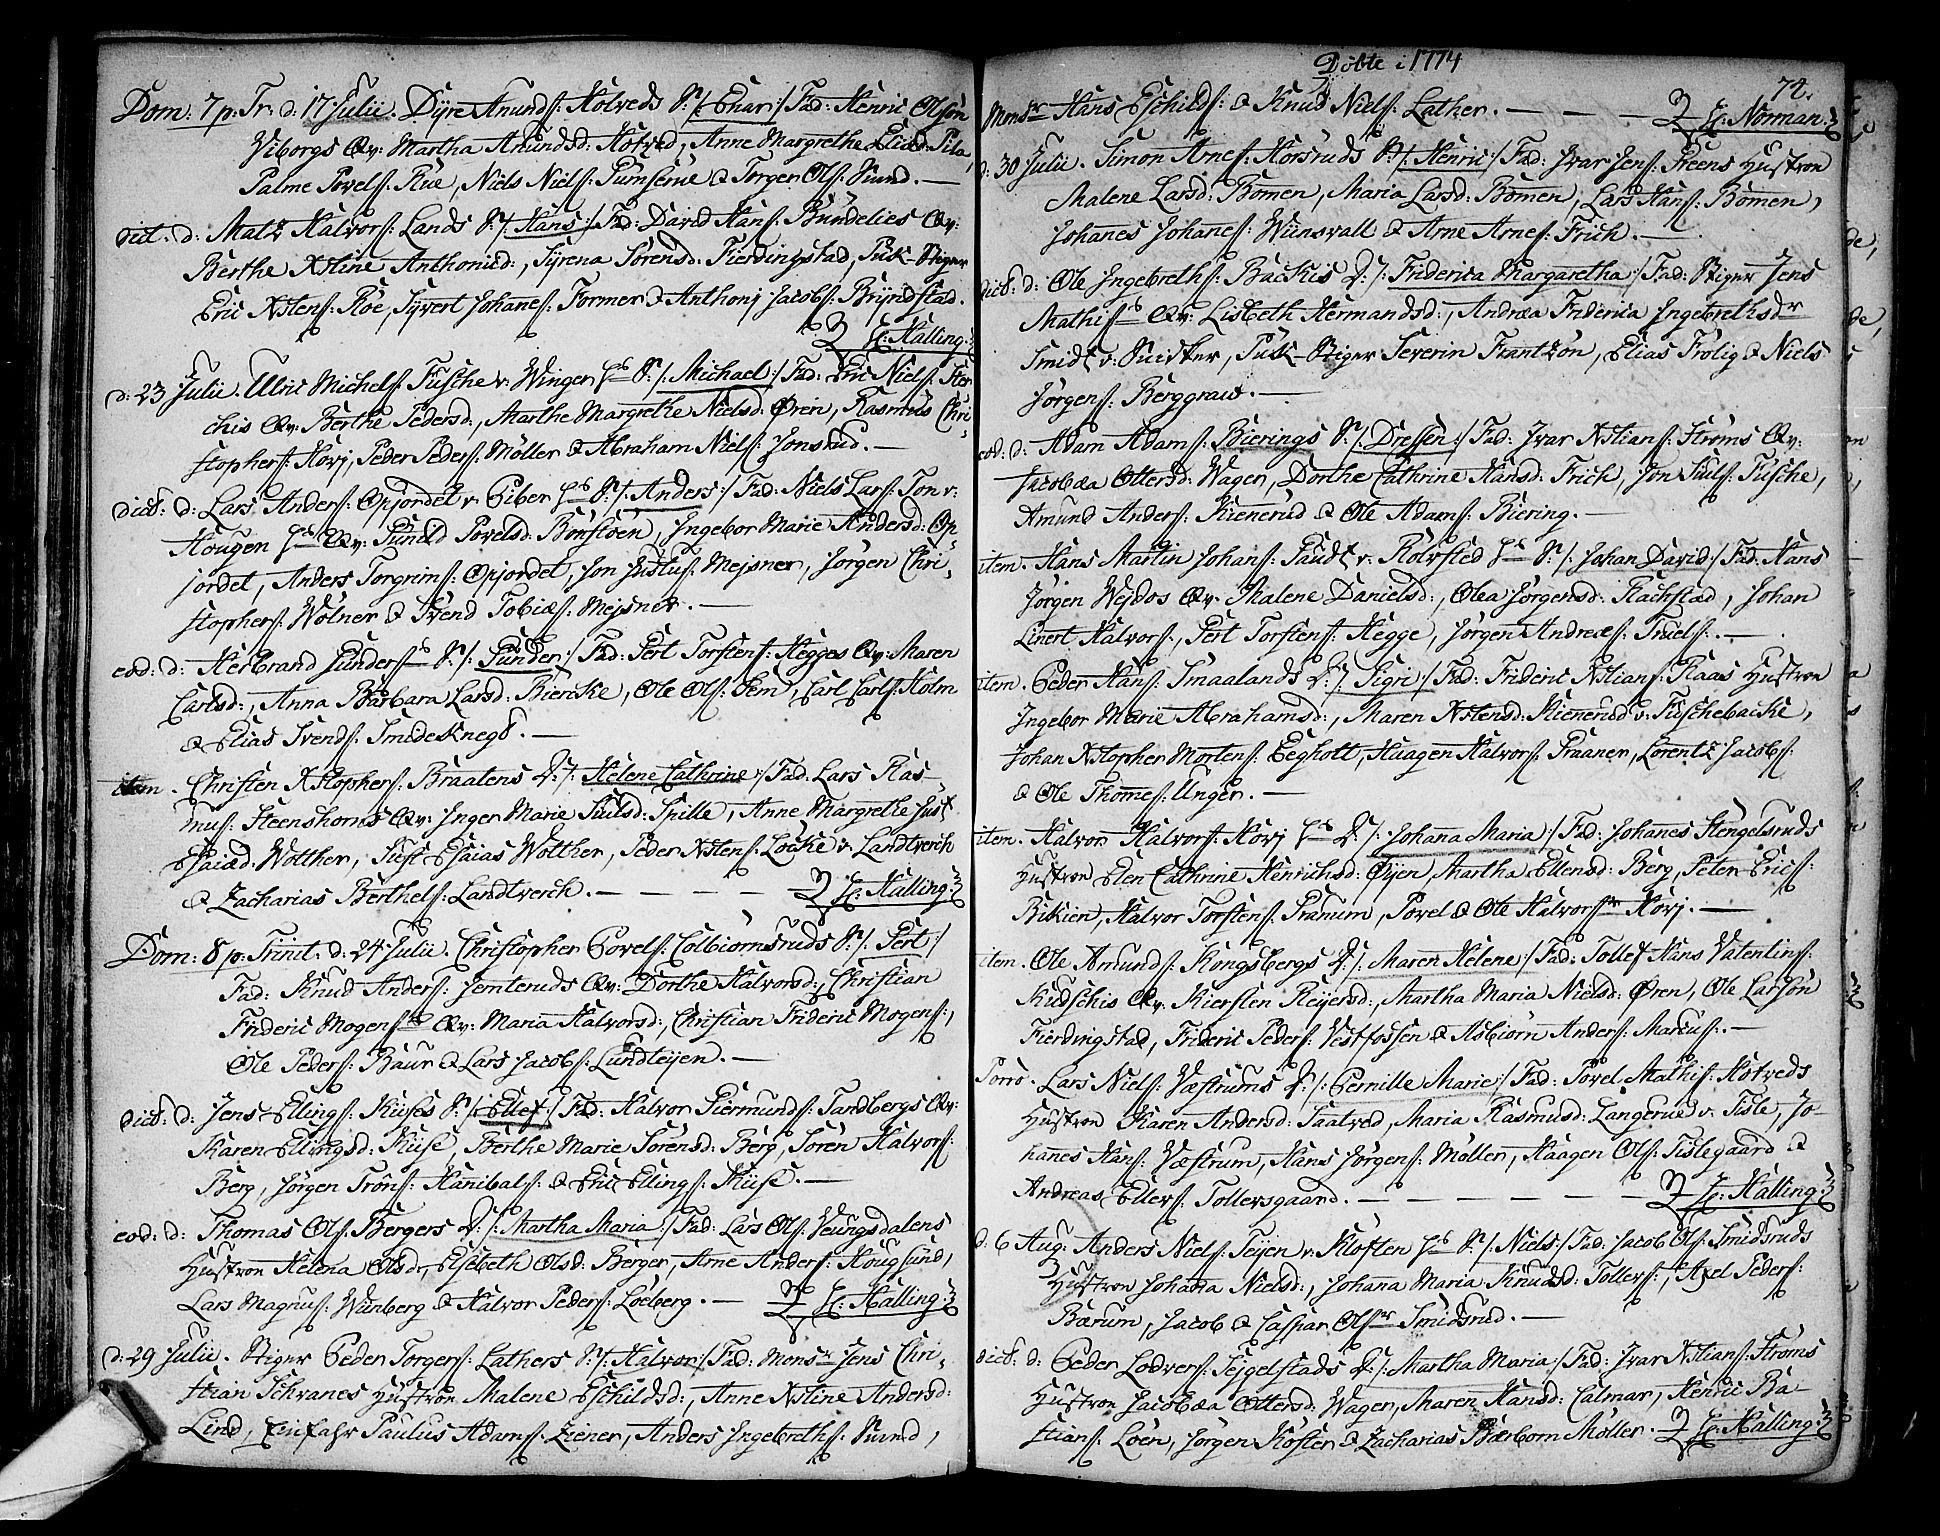 Dom: 7 p: Tr: d: 17 Julii. Dÿre Anundß: Hotveds S: /: Enar :/ Fad: Henric Olsøn
Viborgs Qv: Martha Anundsd: Hotved, Anne Margrethe Eliæd: Pila,
Palme Povelß: Rue, Niels Nielß: & Torger Olß: Sund. —
dict: d: Matz Halvorß: Lands S: /: Hans :/ Fad: David Hanß: Bündelies Qv:
Berthe Xstine Anthonisd:, Syrena Sørensd: Fierdingstad, Puk-Stiger
Eric Xstenß: Roe, Syvert Johaneß: Former & Anthonj Jacobß: Bryndstad.
H: Halling:
d: 23 Julii. Ulric Michelß: Fusche v: Winger S: /: Michael :/ Fad: Eric Nielß: Ster
chis Qv: Berthe Pedersd:, Marthe Margrethe Nielsd: Øren, Rasmus Chri
stopherß: Hovj, Peder Pederß: Møller & Abraham Nielß: Jonsrud. —
dict: d: Lars Anderß: Opjordet v: Eiber S: /: Anders :/ Fad: Niels Larß: Ton v:
Hougen Qv: Gunild Povelsd: Børstøen, Ingebor Marie Andersd: Op
jordet, Anders Torgrimß: Opjordet, Jon Justuß: Mejsner, Jørgen Chri,
stopherß: Wølner & Svend Tobiæß: Mejsner. —
eod: d: Herbrand Gunderß S: /: Gunder :/ Fad: Pert Torstenß: Hegges Qv: Maren
Carlsd:, Anna Barbara Larsd: Biercke, Ole Olß: Sem, Carl Carlß: Holm
& Elias Svendß: Smideknegt. —
item. Christen Xstopherß: Braatens D: /: Helene Cathrine :/ Fad: Lars Ras-
muß: Steenshorns Qv: Inger Marie Siulsd: Spille, Anne Margrethe Just
Esaiæd: Wotther, Just Esaias Wotther, Peder Xstenß: Locke v: Landtverch
& Zacharias Berthelß: Landtverch. — — — — H: Halling:
Dom: 8 p: Trinit. d: 24 Julii. Christopher Povelß: Colbiornsruds S: /: Pert :/
Fad: Knud Anderß: Jemteruds Qv: Dorthe Halvorsd:, Christian
Frideric Mogenß Qv: Maria Halvorsd:, Christian Frideric Mogenß:,
Ole Pederß: Baur & Lars Jacobß: Lundteÿen. —
dict: d: Jens Ellingß: Kuses S: /: Ellef :/ Fad: Halvor Giermundß: Sandbergs Qv:
Karen Ellingsd: Kuse, Berthe Marie Sørensd: Berg, Søren Halvorß:
Berg, Jørgen Trønß: Hanibalß: & Eric Ellingß: Kuse. —
eod: d: Thomas Olß: Bergers D: /: Martha Maria :/ Fad: Lars Olß: Veungsdalens
Hustroe Helena Olsdr, Elsebeth Olsd: Berger, Arne Anderß: Hougsund,
Lars Magnuß: Wunberg & Halvor Pederß: Loeberg. — H: Halling:
d: 29 Julii. Stiger Peder Torgerß: Lathers S: /: Halvor :/ Fad: Monsr Jens Chri,
stian Schranes Hustroe Malene Eschildsd:, Anne Xstine Andersd:
Lind, Einfahr Paulus Adamß: Ziener, Anders Ingebrethß: Sund,
Døbte i 1774
74.
Monsr Hans Eschildß: & Knud Nielß: Lather. — — — — H: Norman:
d: 30 Julii. Simon Arneß: Horsruds S: /: Henric :/ Fad: Ivar Jenß: Steens Hustroe
Malene Larsd: Bomen, Maria Larsd: Bomen, Lars Hanß: Bomen,
Johanes Johaneß: Wiinsvall & Arne Arneß: Frich. —
dict: d: Ole Ingebrethß: Backis D: /: Friderica Margaretha :/ Fad: Stiger Jens
Mathiß Qv: Lisbeth Hermandsd:, Andræa Friderica Ingebrethsdr
Smidt v: Suisker, Puk-Stiger Severin Frantzøn, Elias Frølig & Niels
Jørgenß: Berggraw. —
eod: d: Adam Adamß: Bierings S: /: Dressen :/ Fad: Ivar Xstianß: Strøms Qv:
Jacobæa Ottersd: Wager, Dorthe Cathrine Hansd: Frich, Jon Siulß: Fusche,
Amund Anderß: Kienerud & Ole Adamß: Biering. —
item. Hans Martin Johanß: Paudt v: Rolvsted S: /: Johan David :/ Fad: Hans
Jørgen Wejdos Qv: Malene Danielsd:, Olea Jørgensd: Rachstad, Johan
Linert Halvorß:, Pert Torstenß: Hegge, Jørgen Andreæß: Truelß. —
item. Peder Hanß: Smaalands D: /: Sigri :/ Fad: Frideric Xstianß: Raas Hustroe
Ingebor Marie Abrahamsd:, Maren Xstensd: Kienerud v: Fuschebacke,
Johan Xstopher Mortenß: Eegholt, Haagen Halvorß: Praaner, Lorentz Jacobß:
& Ole Thomeß: Unger. —
item. Halvor Halvorß: Hovj D: /: Johana Maria :/ Fad: Johanes Stengelsruds
Hustroe Elen Cathrine Henrichsd: Øÿen, Martha Ellensd: Berg, Peter Ericß:
Bikien, Halvor Torstenß: Pranum, Povel & Ole Halvorßr Hovj. —
item. Ole Amundß: Kongsbergs D: /: Maren Helene :/ Fad: Tollef Hans Valentinß:
Kudschis Qv: Kiersten Reijersd:, Martha Maria Nielsd: Øren, Ole Larsøn
Fierdingstad, Frideric Pederß: Vestfossen & Asbiørn Anderß: Marcuß. —
Porro. Lars Nielß: Væstrums D: /: Pernille Marie :/ Fad: Povel Mathiß: Hotveds
Hustroe Karen Andersd: Saatved, Maria Rasmusd: Langerue v: Fisle, Jo-
hanes Hanß: Væstrum, Hans Jørgenß: Møller, Haagen Olß: Fislegaard &
Andreas Ellefß: Tollefsgaard. — — — — — H: Halling:
d: 6 Aug: Anders Nielß: Teÿen v: Kloften S: /: Niels :/ Fad: Jacob Olß: Smidsruds
Hustroe Johana Nielsd:, Johana Maria Knudsd: Tollefß:, Axel Pederß:
Bærum, Jacob & Caspar Olßr Smidsrud. —
dict: d: Peder Lodverß: Tejgelstads D: /: Martha Maria :/ Fad: Ivar Xstianß: Strøms
Hustroe Jacobæa Ottersd: Wager, Maren Hansd: Calmar, Henric Ba-
stianß: Loen, Jørgen Koster & Zacharias Bærbom Møller. — H: Halling: